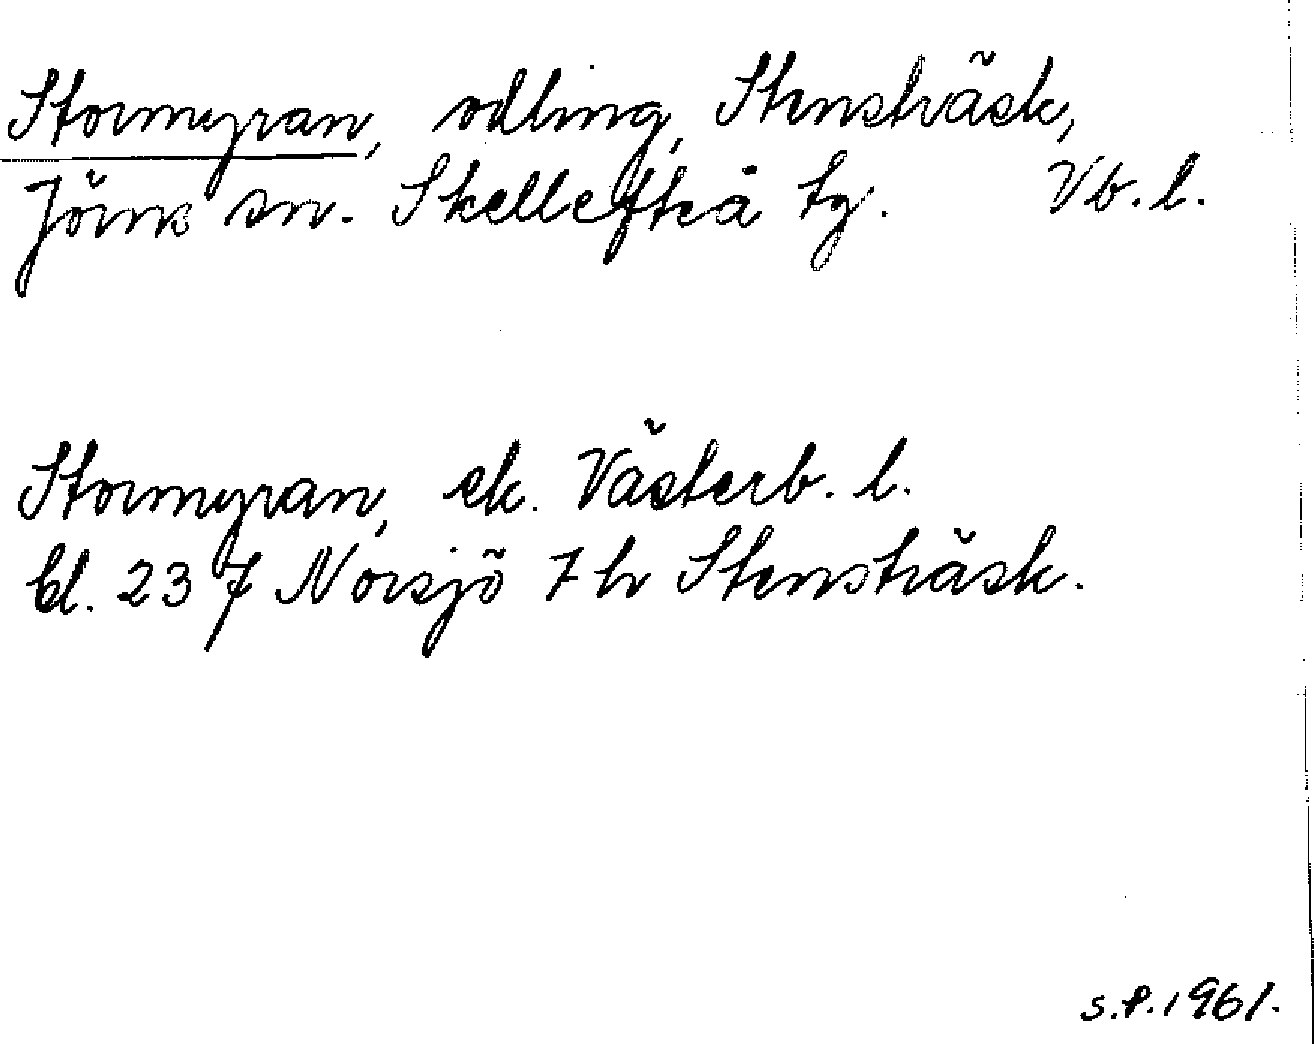 Stormyran, odling, Stensträsk,
Jörns sn. Skellefteå tg. Vb. l.
Stormyran, ek. Västerb. l.
bl. 237 Norsjö 7 h Stensträsk.
s.f. 1961.